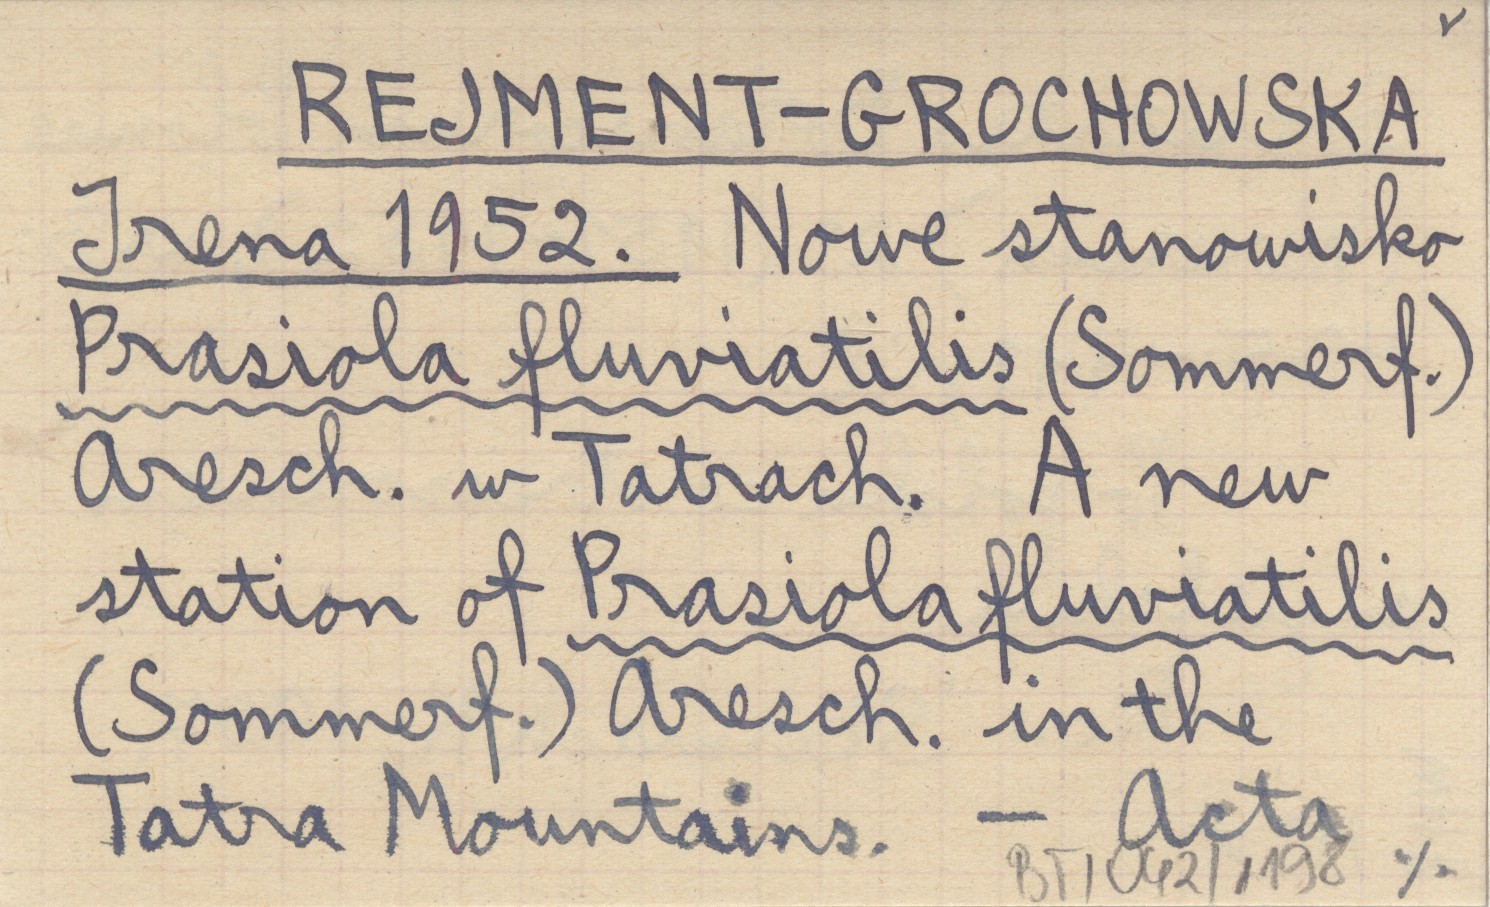 REJMENT-GROCHOWSKA
Irena 1952. Nowe stanowisko
Prasiola fluviatilis (Sommerf.)
Aresch. w Tatrach. A new
station of Prasiola fluviatilis
(Sommerf.) Aresch. in the
Tatra Mountains. — Acta